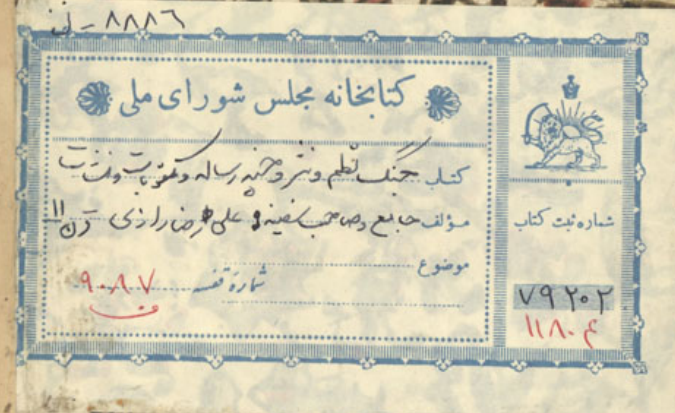 ۸۸۸۶
کتابخانه مجلس شورای ملی
کتاب جنگ نظم و نثر و چند رساله و مکتوبات و منشآت
مؤلف جامع و صاحب سفینه علی رضا رازی قرن ۱۱
موضوع
شماره قفسه ۹۰۸۷
ف
شماره ثبت کتاب
۷۹۲۰۲
۱۱۸۰۴